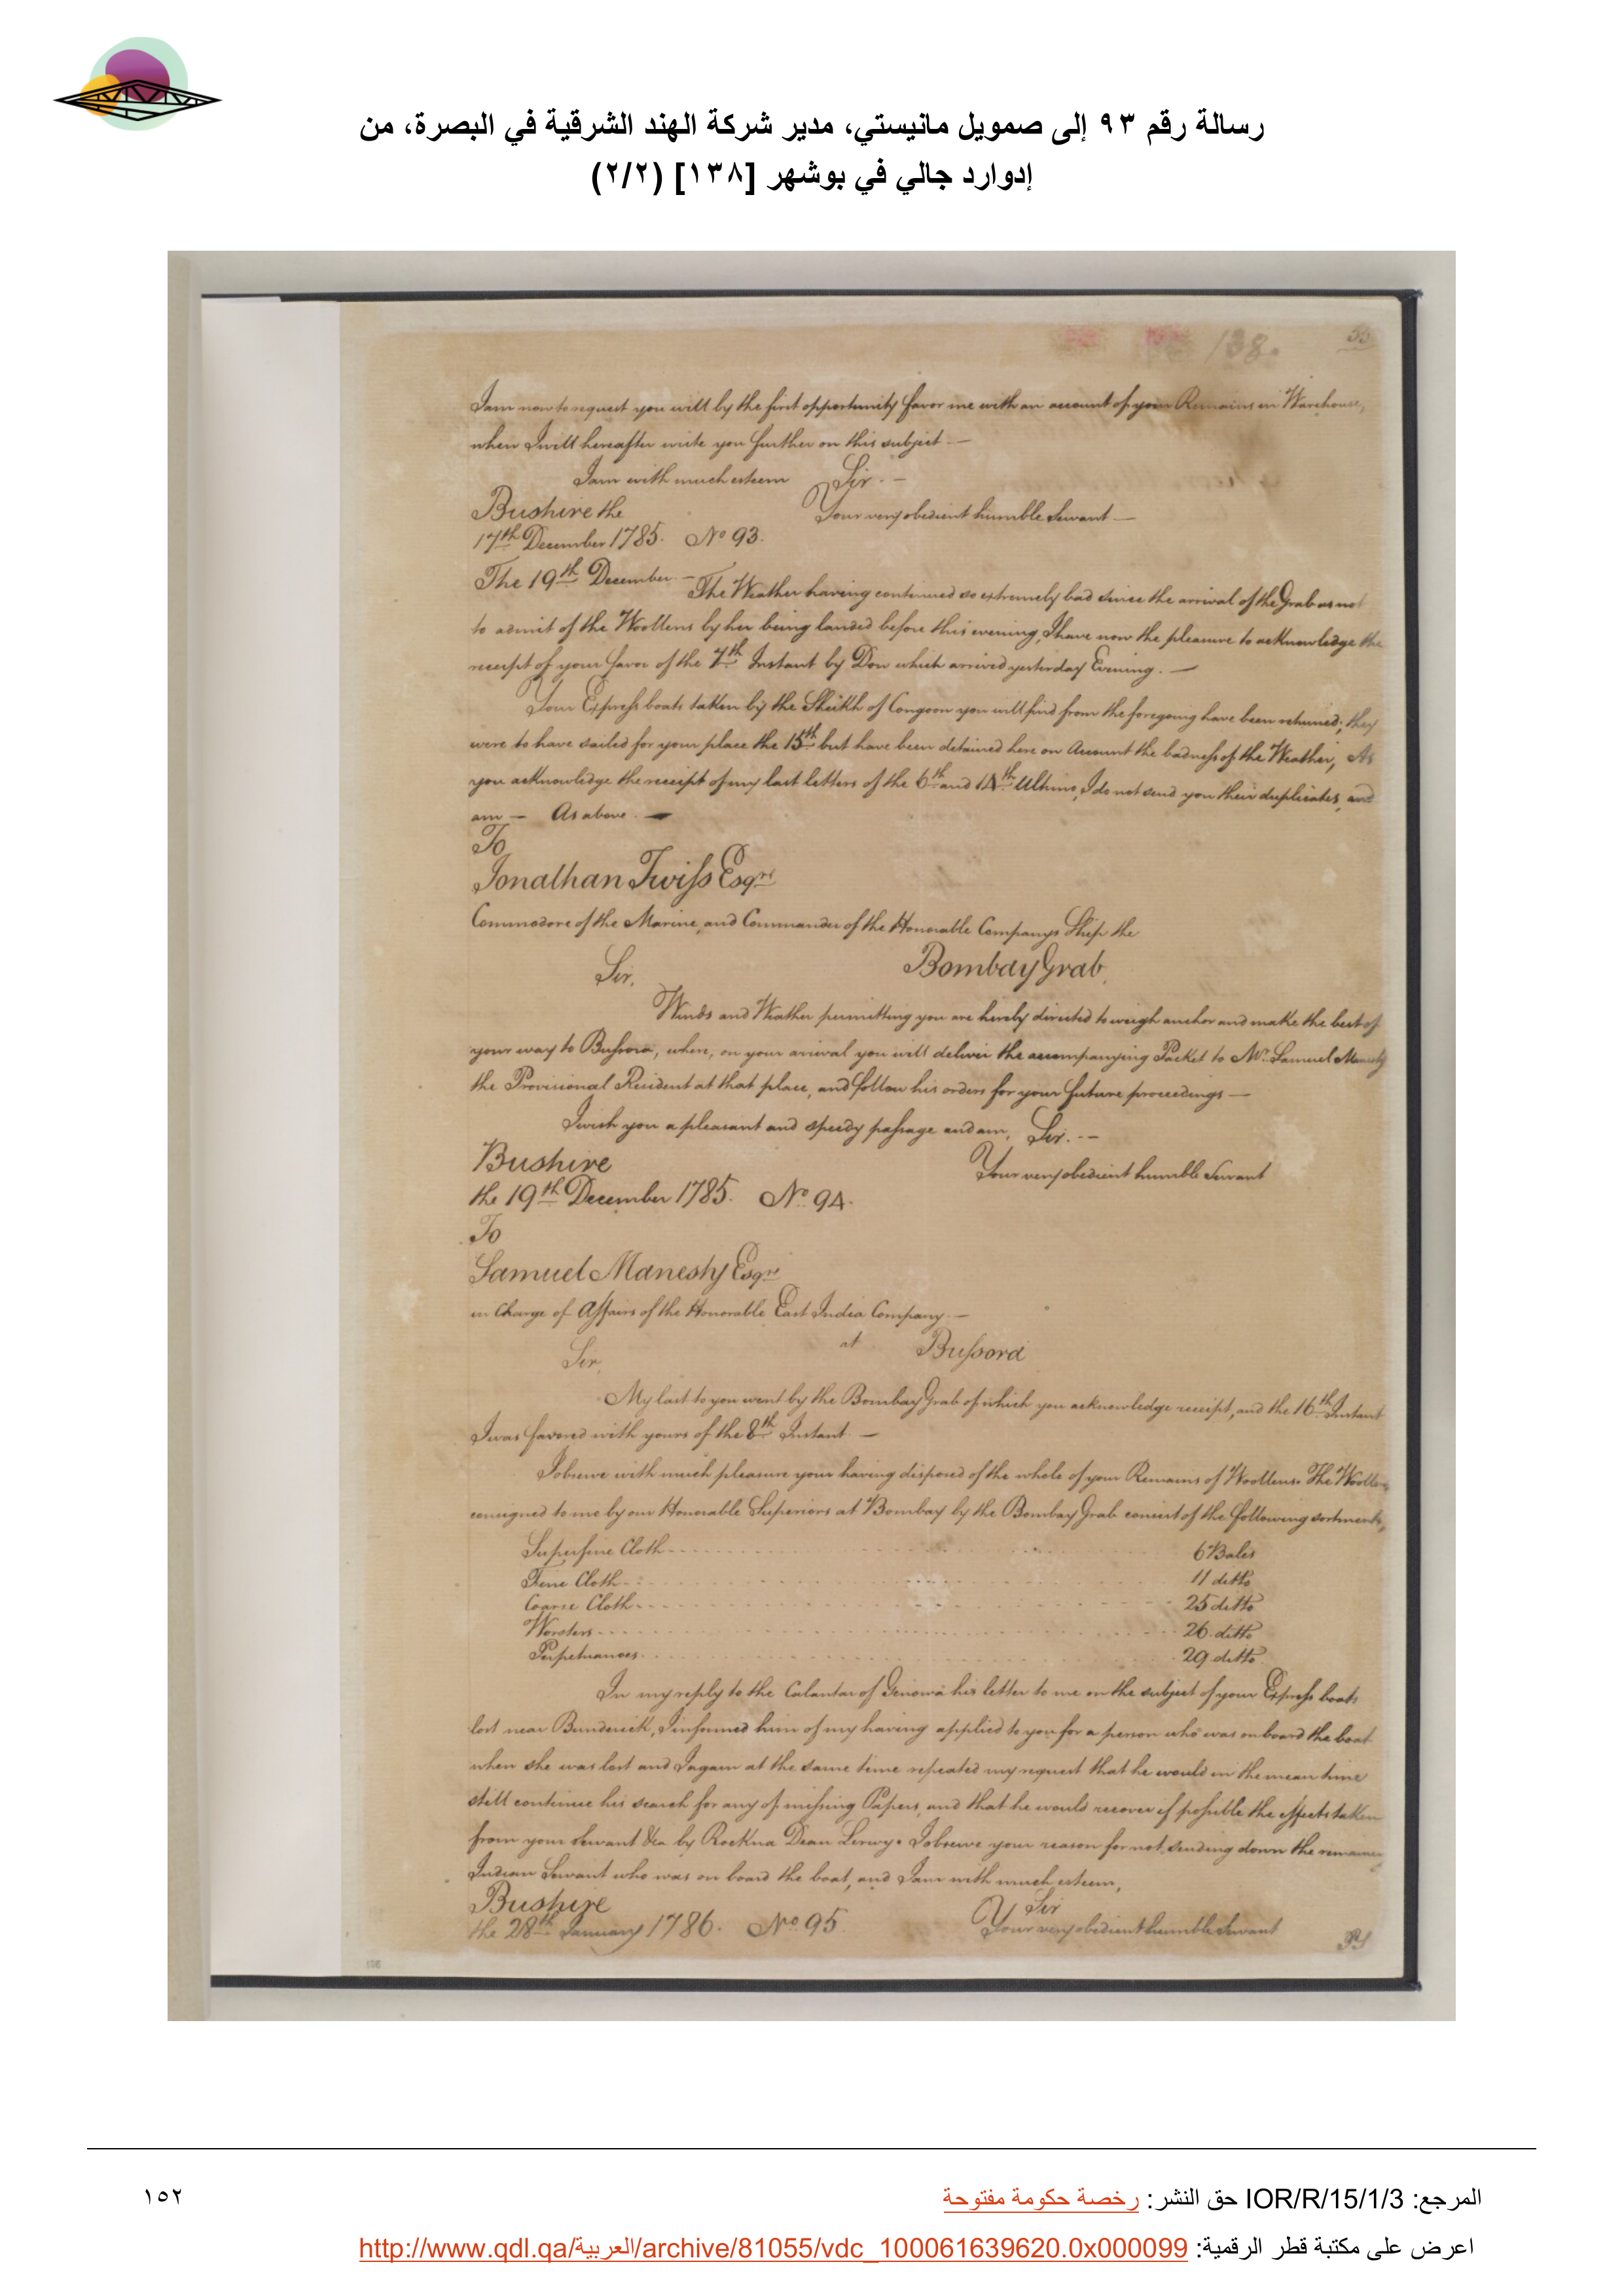 رسالة رقم ٩٣ إلى صمويل مانيستي، مدير شركة الهند الشرقية في البصرة، من
إدوارد جالي في بوشهر [١٣٨] (٢/٢)
138.
I am now to request you will by the first opportunity favor me with an account of your Remains in Warehouse,
when I will hereafter write you further on this subject —
I am with much esteem Sir. —
Bushire the Your very obedient humble Servant —
17th December 1785. No 93.
The 19th December — The Weather having continued so extremely bad since the arrival of the Grab as not
to admit of the Woollens by her being landed before this evening, I have now the pleasure to acknowledge the
receipt of your favor of the 7th Instant by Dow which arrived yesterday Evening. —
Your Express boats taken by the Sheikh of Congoon you will find from the foregoing have been returned; they
were to have sailed for your place the 15th but have been detained here on Account the badness of the Weather, As
you acknowledge the receipt of my last letters of the 6th and 14th Ultimo, I do not send you their duplicates, and
am — As above. —
To
Jonathan Twiss Esqre
Commodore of the Marine and Commander of the Honorable Companys Ship the
Sir, Bombay Grab.
Winds and Weather permitting you are hereby directed to weigh anchor and make the best of
your way to Bussora, where, on your arrival you will deliver the accompanying Packet to Mr. Samuel Manesty
the Provisional Resident at that place, and follow his orders for your future proceedings —
I wish you a pleasant and speedy passage and am, Sir. —
Bushire Your very obedient humble Servant
the 19th December 1785. No. 94.
To
Samuel Manesty Esqre
in Charge of Affairs of the Honorable East India Company —
at Bussora
Sir,
My last to you went by the Bombay Grab of which you acknowledge receipt, and the 16th Instant
I was favored with yours of the 8th Instant —
I observe with much pleasure your having disposed of the whole of your Remains of Woollens. The Woollens
consigned to me by our Honorable Superiors at Bombay by the Bombay Grab consist of the following sortments,
Superfine Cloth 6 Bales
Fine Cloth 11 ditto
Coarse Cloth 25 ditto
26. ditto
Perpetuanoes 29 ditto
In my reply to the Calantar of Genowa his letter to me on the subject of your Express boats
lost near Bunderick, I informed him of my having applied to you for a person who was on board the boat
when she was lost and I again at the same time repeated my request that he would in the mean time
still continue his search for any of missing Papers, and that he would recover if possible the effects taken
from your Servant &ca by Rockna Dean I observe your reason for not sending down the
Indian Servant who was on board the boat, and I am with much esteem,
Bushire Sir
the 28th January 1786. No 95. Your very obedient humble Servant
المرجع: IOR/R/15/1/3 حق النشر: رخصة حكومة مفتوحة
١٥٢
اعرض على مكتبة قطر الرقمية: http://www.qdl.qa/العربية/archive/81055/vdc_100061639620.0x000099